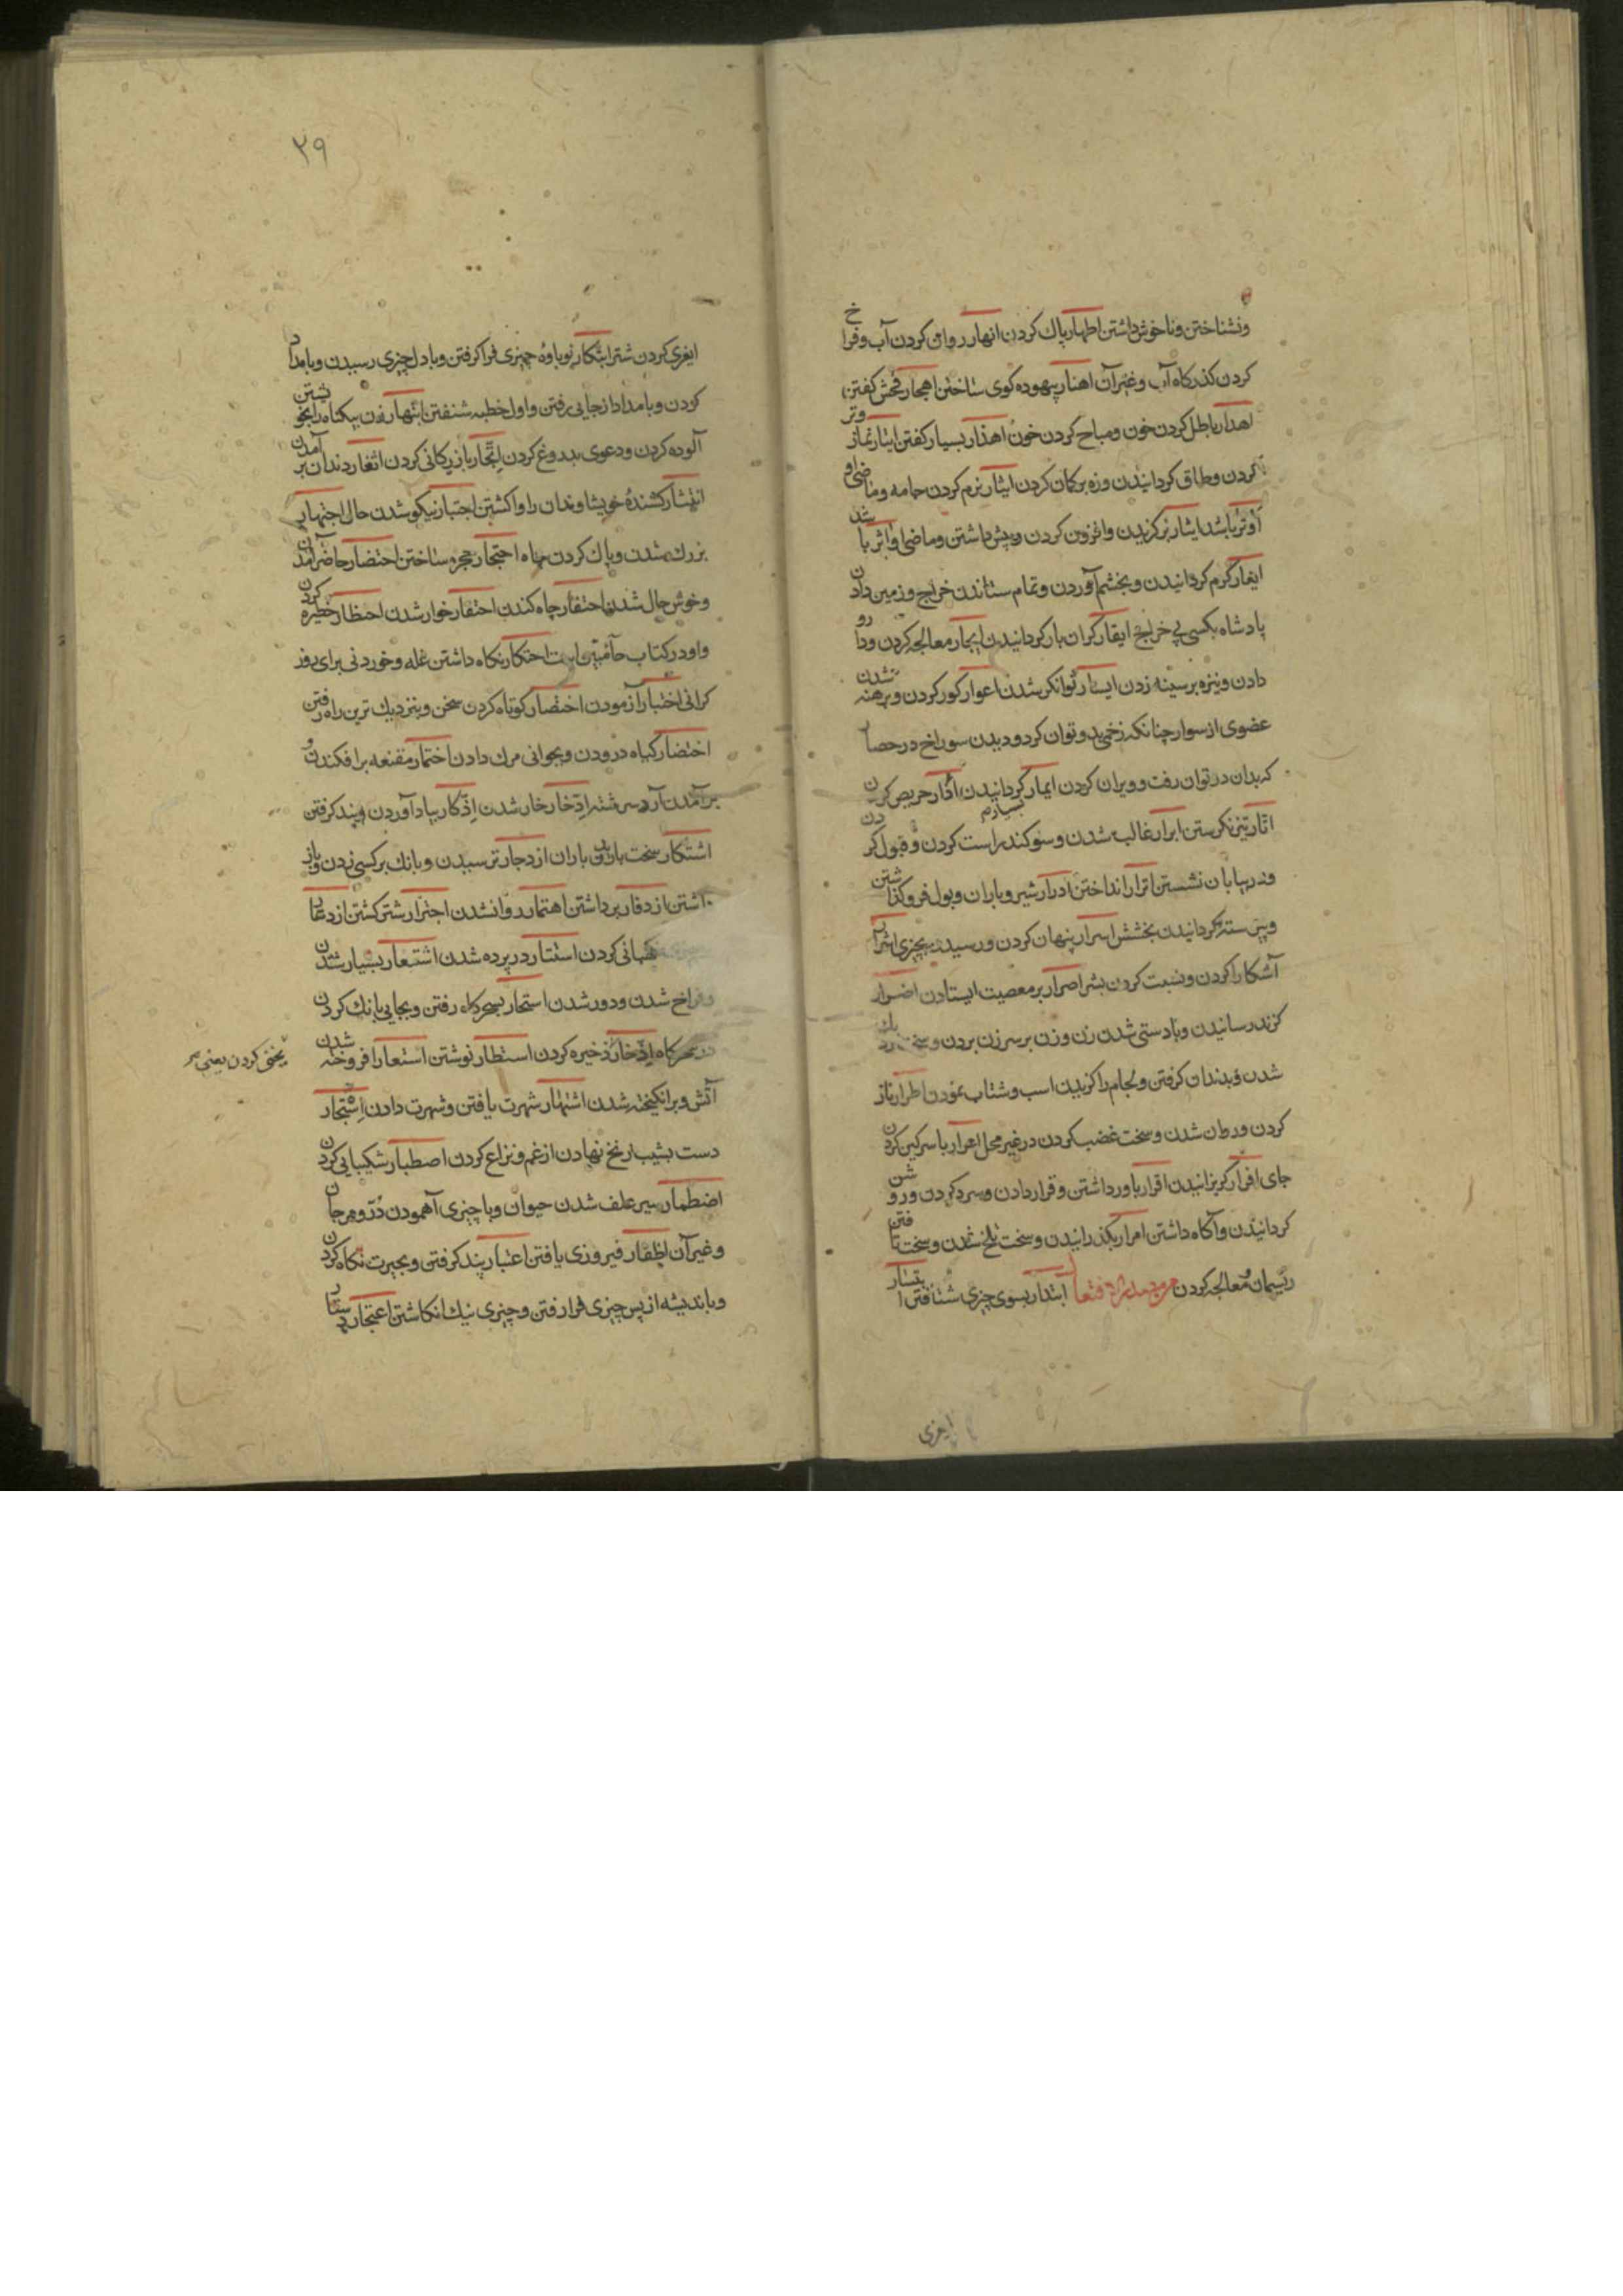 ونشناختن وناخوش داشتن اطهار پاک کردن انهار روان کردن آب وفراخ
کردن کذرکاه آب وغیر آن اهنار بیهوده کوی ساختن اهجار فحش کفتن
اهدار باطل کردن خون ومباح کردن خون اهذار بسیار کفتن ایتار نماز وتر
کردن وطاق کردانیدن وزه بر کمان کردن ایثار نرم کردن جامه وماضی او
اوثر باشد ایثار برکزیدن وافزون کردن وپیش داشتن وماضی او اثر باشد
ایغار کرم کردانیدن وبخشم آوردن وتمام ستاندن خراج وزمین دادن
پادشاه بکسی بی خراج ایقار کران بار کردانیدن ایجار معالجه کردن ودارو
دادن ونیزه بر سینه زدن ایسار توانکر شدن اعوار کور کردن وبرهنه شدن
عضوی از سوار چنانکه زخمی بدو توان کرد ودیدن سوراخ در حصار
که بدان در توان رفت وویران کردن ایمار کردانیدن اذار حریص کردن
اتار تیز نکرستن ابرار غالب شدن وسوکند راست کردن وقبول کردن
ودر بیابان نشستن اترار انداختن ادرار شیر وباران وبول فرو کذاشتن
کردانیدن بخشش اسرار پنهان کردن ورسیدن بچیزی اشرار
آشکارا کردن ونسبت کردن بشر اصرار بر معصیت ایستادن اضرار
کزند رسانیدن وبا دستی شدن زن وزن بر سر زن بردن وسخت
شدن وبدندان کرفتن ولجام را کزیدن اسب وشتاب نمودن اطرار ناز
کردن وروان شدن وسخت غضب کردن در غیر محل اعرار با سرکین کردن
جای افرار کریزانیدن اقرار باور داشتن وقرار دادن وسرد کردن وروشن
کردانیدن وآکاه داشتن امرار بکذرانیدن وسخت تلخ شدن وسخت تافتن
ریسمان ومعالجه کردن ابتدار بسوی چیزی شتافتن ابتسار
ایغری
۲۹
ایغری کردن شتر ابتکار نوباوه چیزی فرا کرفتن وباول چیزی رسیدن وبامداد
کردن وبامداد از جایی رفتن واول خطبه شنفتن ابتهار زن بیکناه را بخویشتن
آلوده کردن ودعوی بدروغ کردن اتجار بازرکانی کردن اثغار دندان برآمدن
انتشار کشنده خویشاوندان را واکشتن اجتبار نیکو شدن حال اجتهار
بزرک شدن وپاک کردن چاه احتجار حجره ساختن احتضار حاضر آمدن
وخوش حال شدن احتفار چاه کندن احتقار خوار شدن احتظار حظیره کردن
واو در کتاب احتکار نکاه داشتن غله وخوردنی برای روز
کرانی اختبار آزمودن اختصار کوتاه کردن سخن وبنزدیک ترین راه رفتن
اختضار کیاه درودن وبجوانی مرک دادن اختمار مقنعه بر افکندن و
برآمدن آرد سرشته ادخار خار شدن اذکار بیاد آوردن وپند کرفتن
اشتکار سخت باریدن باران ازدجار ترسیدن وبانک بر کسی زدن وباز
داشتن ازدفار برداشتن اهتمار روانشدن اجترار شتر کشتن ازدعار
نکهبانی کردن استتار در پرده شدن اشتعار بسیار شدن
وفراخ شدن ودور شدن استحار بسحرکاه رفتن وبجایی بانک کردن
در سحرکاه ادخار ذخیره کردن استطار نوشتن استعار افروخته شدن
یخنی کردن یعنی
آتش وبرانکیخته شدن اشتهار شهرت یافتن وشهرت دادن اشتجار
دست بشیب زنخ نهادن از غم ونزاع کردن اصطبار شکیبایی کردن
اضطمار سیر علف شدن حیوان وبا چیزی آهمودن در ومرجان
وغیر آن اظفار فیروزی یافتن اعتبار پند کرفتن وبحیرت نکاه کردن
وباندیشه از پس چیزی فرا رفتن وچیزی نیک انکاشتن اعتجار دستار